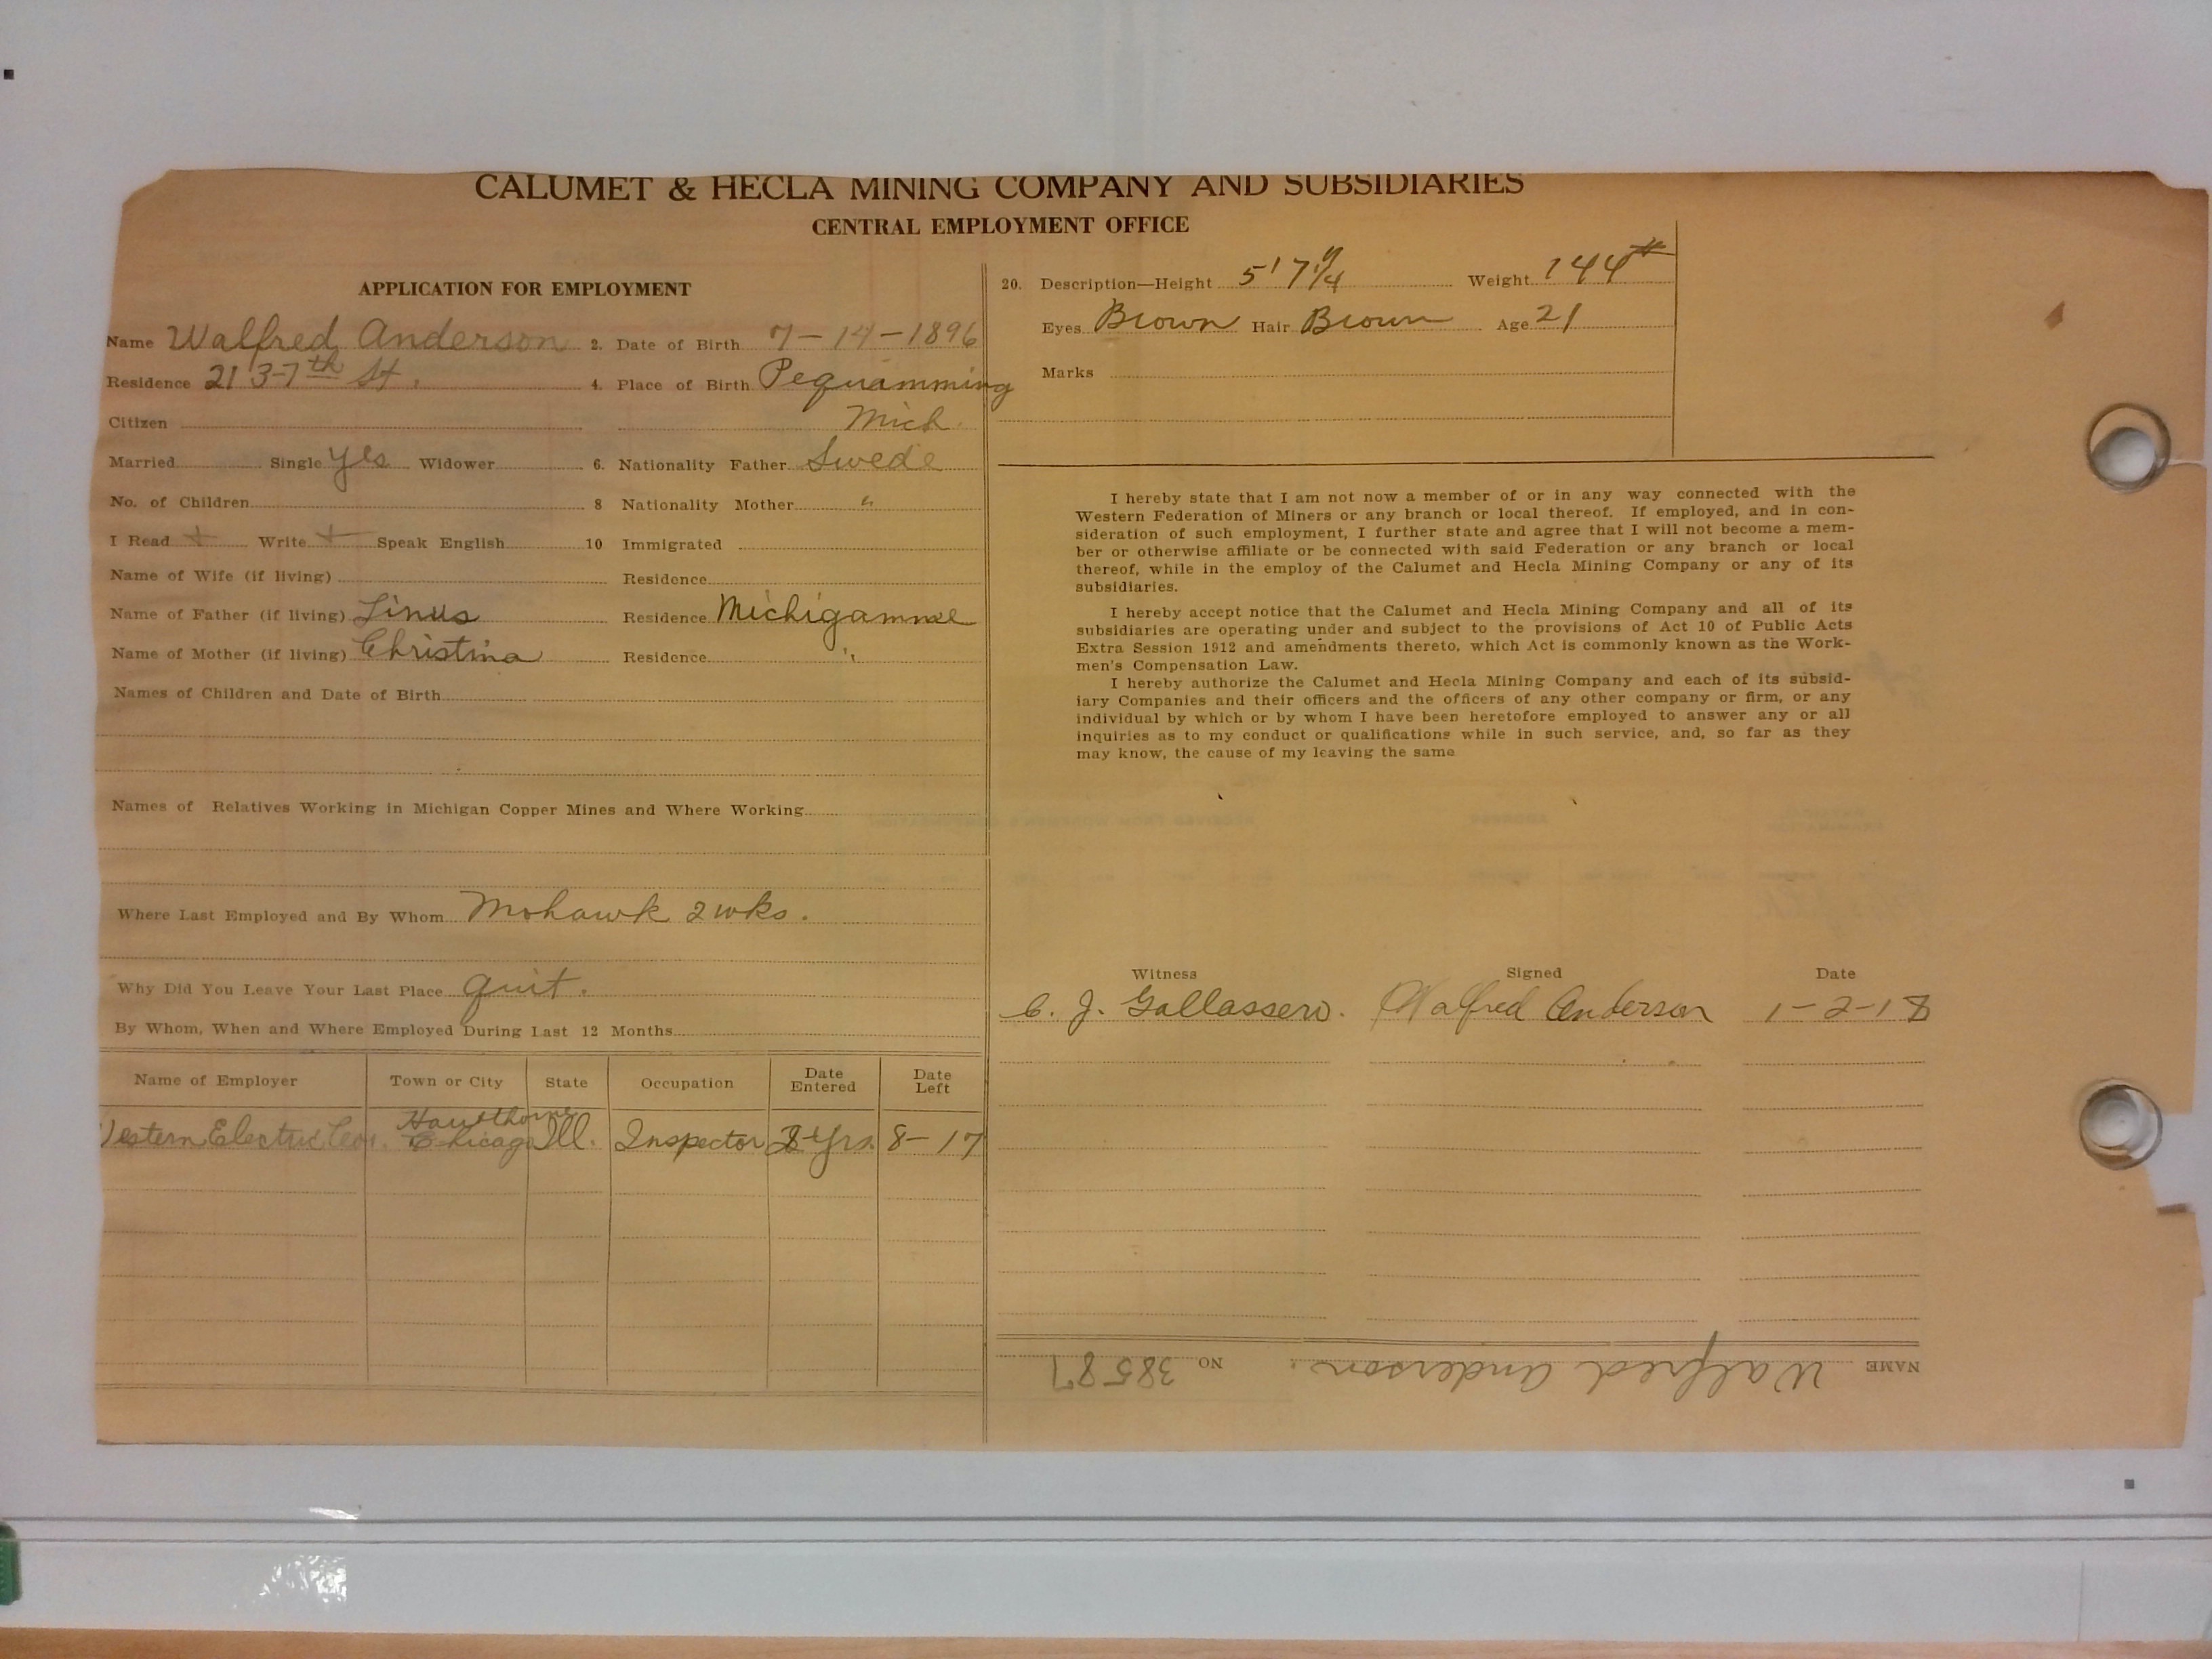 CALUMET & HECLA MINING COMPANY AND SUBSIDIARIES
CENTRAL EMPLOYMENT OFFICE
APPLICATION FOR EMPLOYMENT
Name Walfred Anderson 2. Date of Birth 7-14-1896
Residence 213-7th St. 4. Place of Birth Pequamming
Citizen Mich.
Married Single Yes Widower 6. Nationality Father Swede
No. of Children 8 Nationality Mother "
I Read + Write + Speak English 10 Immigrated
Name of Wife (if living) Residence
Name of Father (if living) Linus Residence Michigamme
Name of Mother (if living) Christina Residence "
Names of Children and Date of Birth
Names of Relatives Working in Michigan Copper Mines and Where Working
Where Last Employed and By Whom Mohawk 2 wks.
Why Did You Leave Your Last Place quit.
By Whom, When and Where Employed During Last 12 Months
Name of Employer Town or City State Occupation Date Entered Date Left
Hawthorne
Western Electric Chicago Ill. Inspector Yrs. 8-17
20. Description—Height 5' 7 1/4" Weight 144#
Eyes Brown Hair Brown Age 21
Marks
I hereby state that I am not now a member of or in any way connected with the
Western Federation of Miners or any branch or local thereof. If employed, and in con-
sideration of such employment, I further state and agree that I will not become a mem-
ber or otherwise affiliate or be connected with said Federation or any branch or local
thereof, while in the employ of the Calumet and Hecla Mining Company or any of its
subsidiaries.
I hereby accept notice that the Calumet and Hecla Mining Company and all of its
subsidiaries are operating under and subject to the provisions of Act 10 of Public Acts
Extra Session 1912 and amendments thereto, which Act is commonly known as the Work-
men's Compensation Law.
I hereby authorize the Calumet and Hecla Mining Company and each of its subsid-
iary Companies and their officers and the officers of any other company or firm, or any
individual by which or by whom I have been heretofore employed to answer any or all
inquiries as to my conduct or qualifications while in such service, and, so far as they
may know, the cause of my leaving the same
Witness Signed Date
C. J. Gallassero. Walfred Anderson 1-2-18
NAME Walfred Anderson. NO 38587